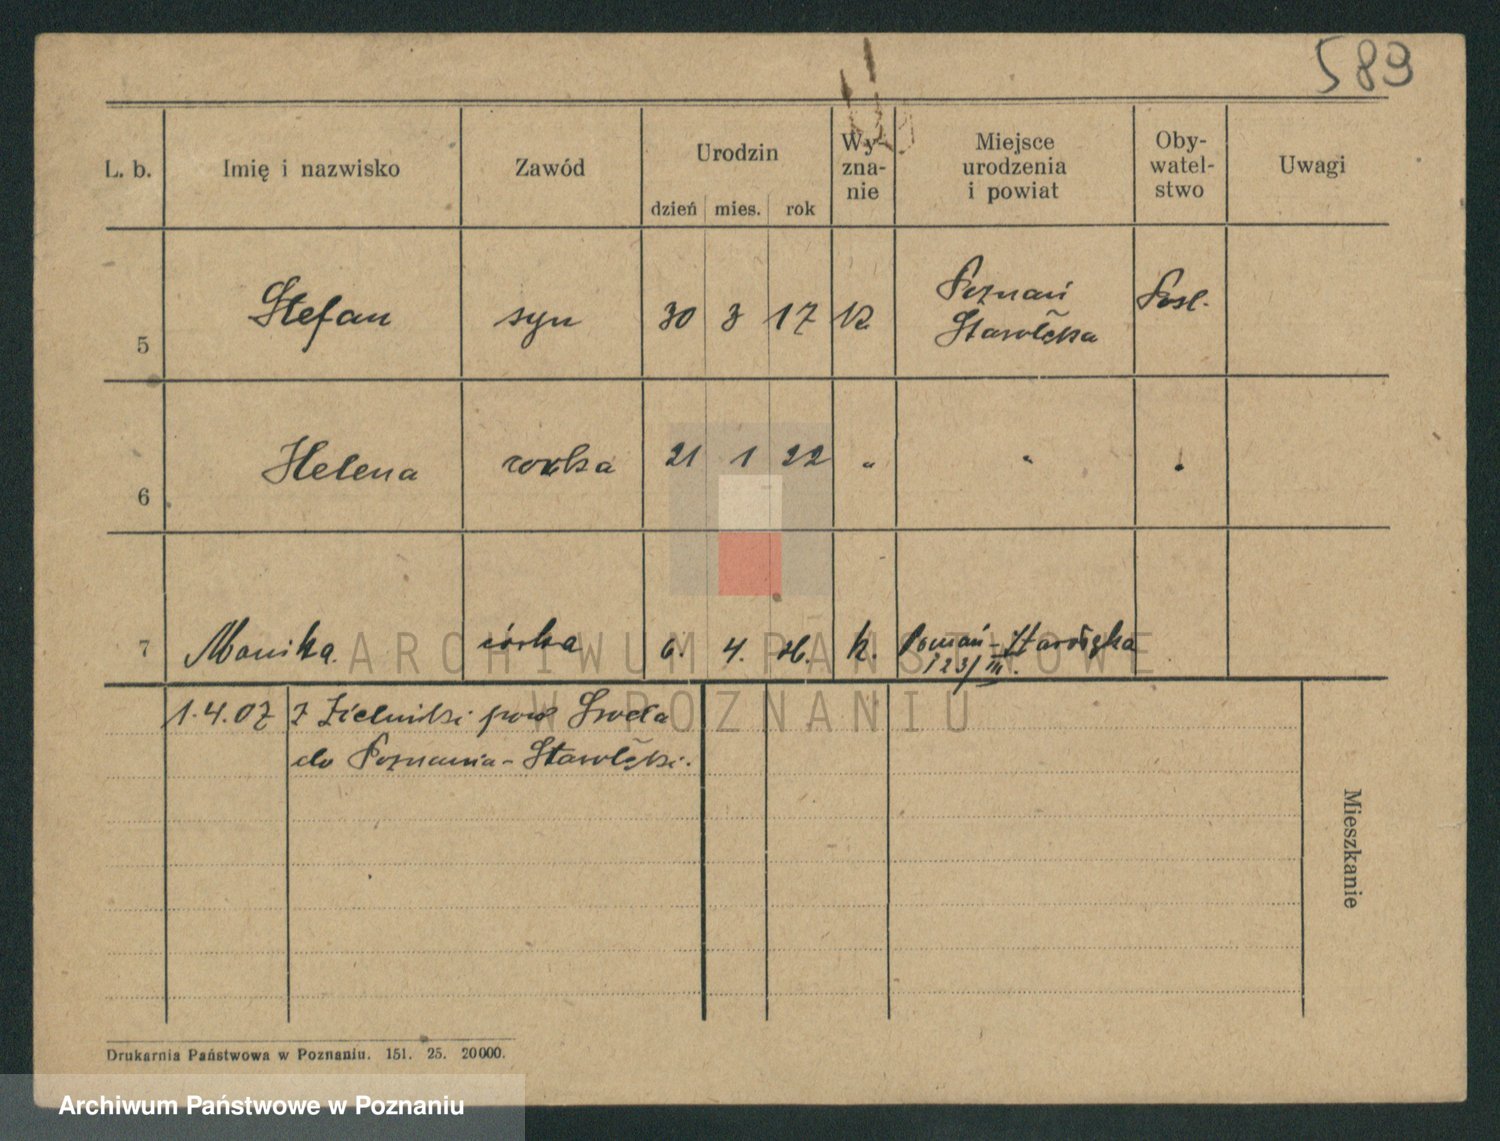 589
L. b. Imię i nazwisko Zawód Urodzin dzień mies. rok Wy- zna- nie Miejsce urodzenia i powiat Oby- watel- stwo Uwagi
5 Stefan syn 30 3 17 k. Poznań Starołęka Pol.
6 Helena córka 21 1 22 " " "
7 Monika. córka 6. 4. 26. k. Poznań-Starołęka
123/III.
1.4.07 z Zielniki pow Środa
do Poznania-Starołęki.
Mieszkanie
ARCHIWUM PAŃSTWOWE
W POZNANIU
Drukarnia Państwowa w Poznaniu. 151. 25. 20000.
Archiwum Państwowe w Poznaniu